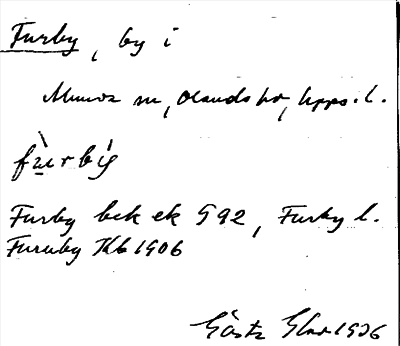 Furby, by i
Munsö sn, Olands hd, Upps. l.
fu̠rby
Furby bek ek § 92, Furby l.
Furuby Kb 1906
Gösta 1936